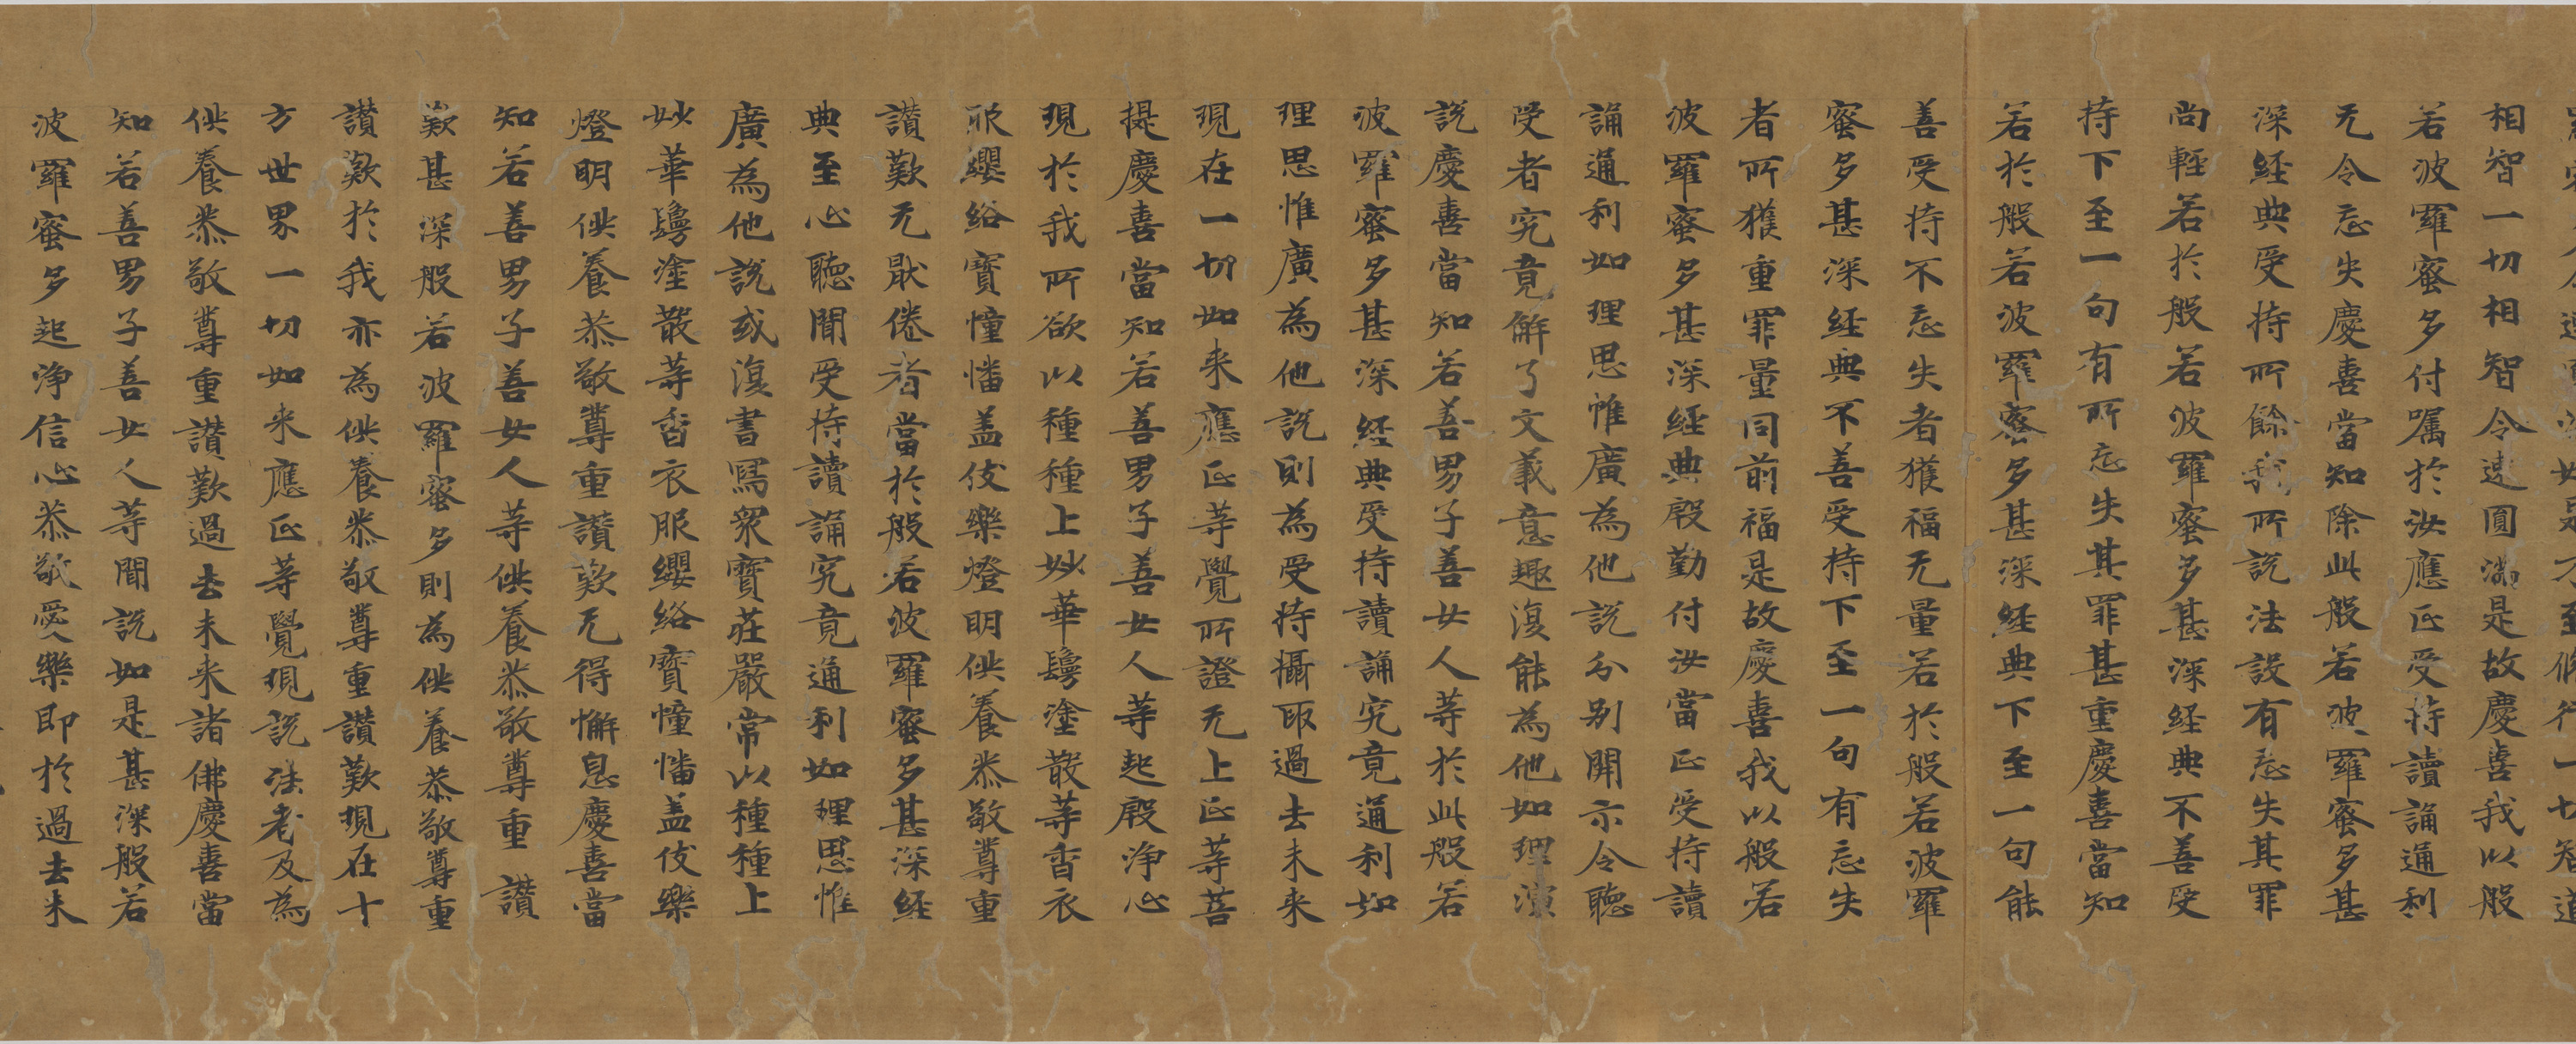 相智一切相智令速圓滿是故慶喜我以般
若波羅蜜多付囑於汝應正受持讀誦通利
无令忘失慶喜當知除此般若波羅蜜多甚
深經典受持所餘我所說法設有忘失其罪
尚輕若於般若波羅蜜多甚深經典不善受
持下至一句有所忘失其罪甚重慶喜當知
若於般若波羅蜜多甚深經典下至一句能
善受持不忘失者獲福无量若於般若波羅
蜜多甚深經典不善受持下至一句有忘失
者所獲重罪量同前福是故慶喜我以般若
波羅蜜多甚深經典殷勤付汝當正受持讀
誦通利如理思惟廣為他說分別開示令聽
受者究竟解了文義意趣復能為他如理演
說慶喜當知若善男子善女人等於此般若
波羅蜜多甚深經典受持讀誦究竟通利如
理思惟廣為他說則為受持攝取過去未來
現在一切如来應正等覺所證无上正等菩
提慶喜當知若善男子善女人等起殷淨心
現於我所欲以種種上妙華鬘塗散等香衣
服纓絡寶幢幡盖伎樂燈明供養恭敬尊重
讚歎无猒倦者當於般若波羅蜜多甚深經
典至心聽聞受持讀誦究竟通利如理思惟
廣為他說或復書寫眾寶莊嚴常以種種上
妙華鬘塗散等香衣服纓絡寶幢幡盖伎樂
燈明供養恭敬尊重讚歎无得懈息慶喜當
知若善男子善女人等供養恭敬尊重讚
歎甚深般若波羅蜜多則為供養恭敬尊重
讚歎於我亦為供養恭敬尊重讚歎現在十
方世界一切如来應正等覺現說法者及為
供養恭敬尊重讚歎過去未来諸佛慶喜當
知若善男子善女人等聞說如是甚深般若
波羅蜜多起淨信心恭敬愛樂即於過去未